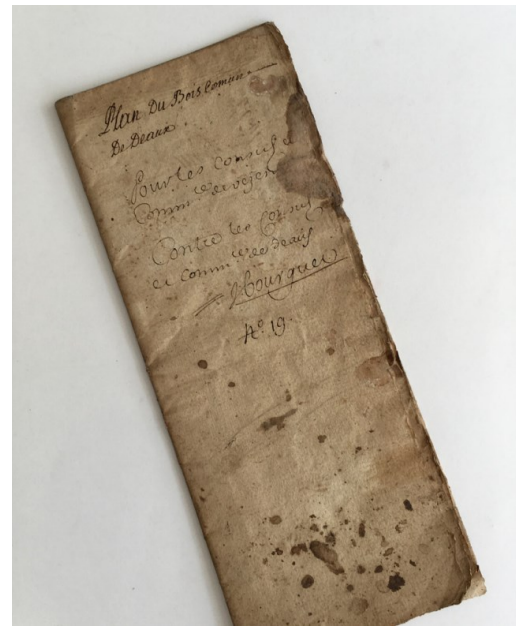 Plan Du Bois Comun
De Deaux.
Pour les consuls et
Comm.te de vezen
Contre les Consuls
et comm.te de deaux
Bourguet
N.º 19.